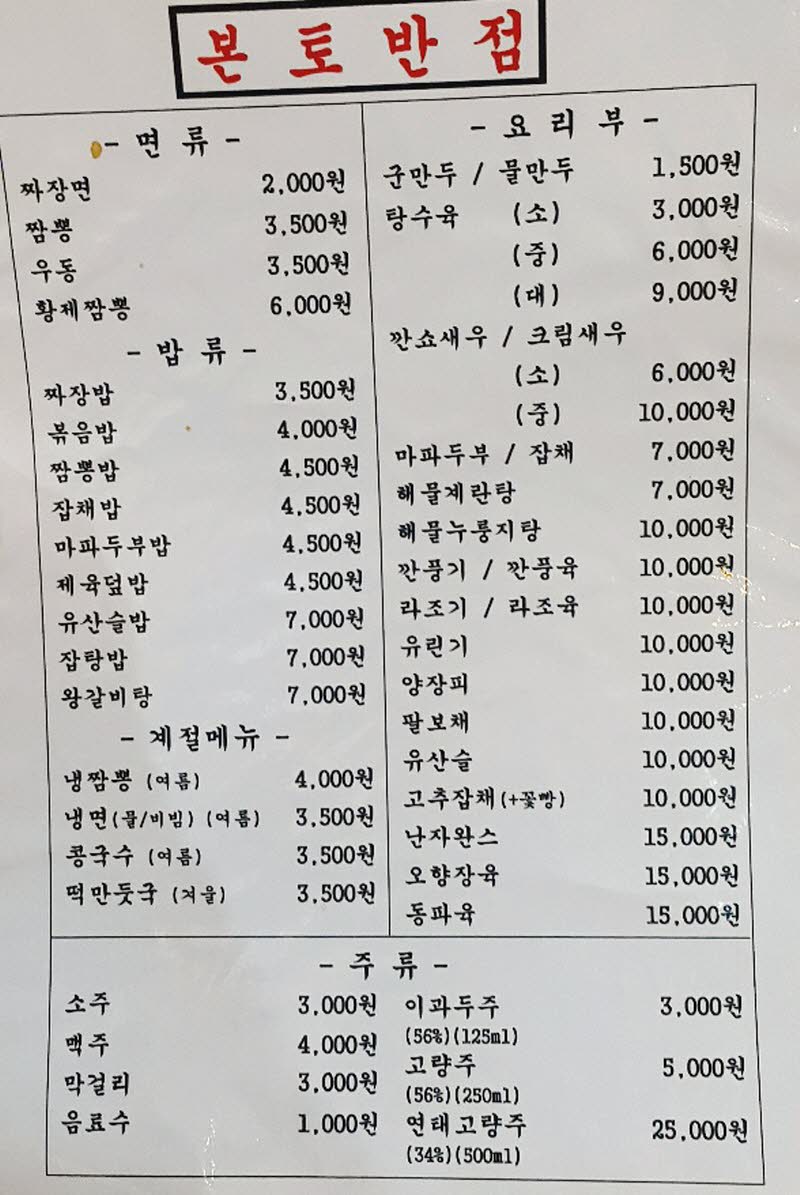 본토반점
- 면 류 -
짜장면 2,000원
짬뽕 3,500원
우동 3,500원
황제짬뽕 6,000원
- 밥 류 -
짜장밥 3,500원
볶음밥 4,000원
짬뽕밥 4,500원
잡채밥 4,500원
마파두부밥 4,500원
제육덮밥 4,500원
유산슬밥 7,000원
잡탕밥 7,000원
왕갈비탕 7,000원
- 계절메뉴 -
냉짬뽕 (여름) 4,000원
냉면(물/비빔) (여름) 3,500원
콩국수 (여름) 3,500원
떡만둣국 (겨울) 3,500원
- 요 리 부 -
군만두 / 물만두 1,500원
탕수육 (소) 3,000원
(중) 6,000원
(대) 9,000원
깐쇼새우 / 크림새우
(소) 6,000원
(중) 10,000원
마파두부 / 잡채 7,000원
해물계란탕 7,000원
해물누룽지탕 10,000원
깐풍기 / 깐풍육 10,000원
라조기 / 라조육 10,000원
유린기 10,000원
양장피 10,000원
팔보채 10,000원
유산슬 10,000원
고추잡채(+꽃빵) 10,000원
난자완스 15,000원
오향장육 15,000원
동파육 15,000원
- 주 류 -
소주 3,000원
맥주 4,000원
막걸리 3,000원
음료수 1,000원
이과두주 3,000원
(56%)(125ml)
고량주 5,000원
(56%)(250ml)
연태고량주 25,000원
(34%)(500ml)